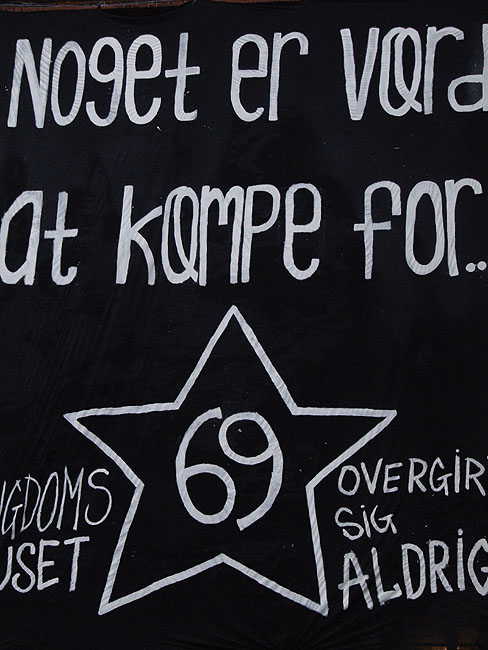 Noget er værd
at kæmpe for..
69
NGDOMS
USET
OVERGIR
SIG
ALDRIG